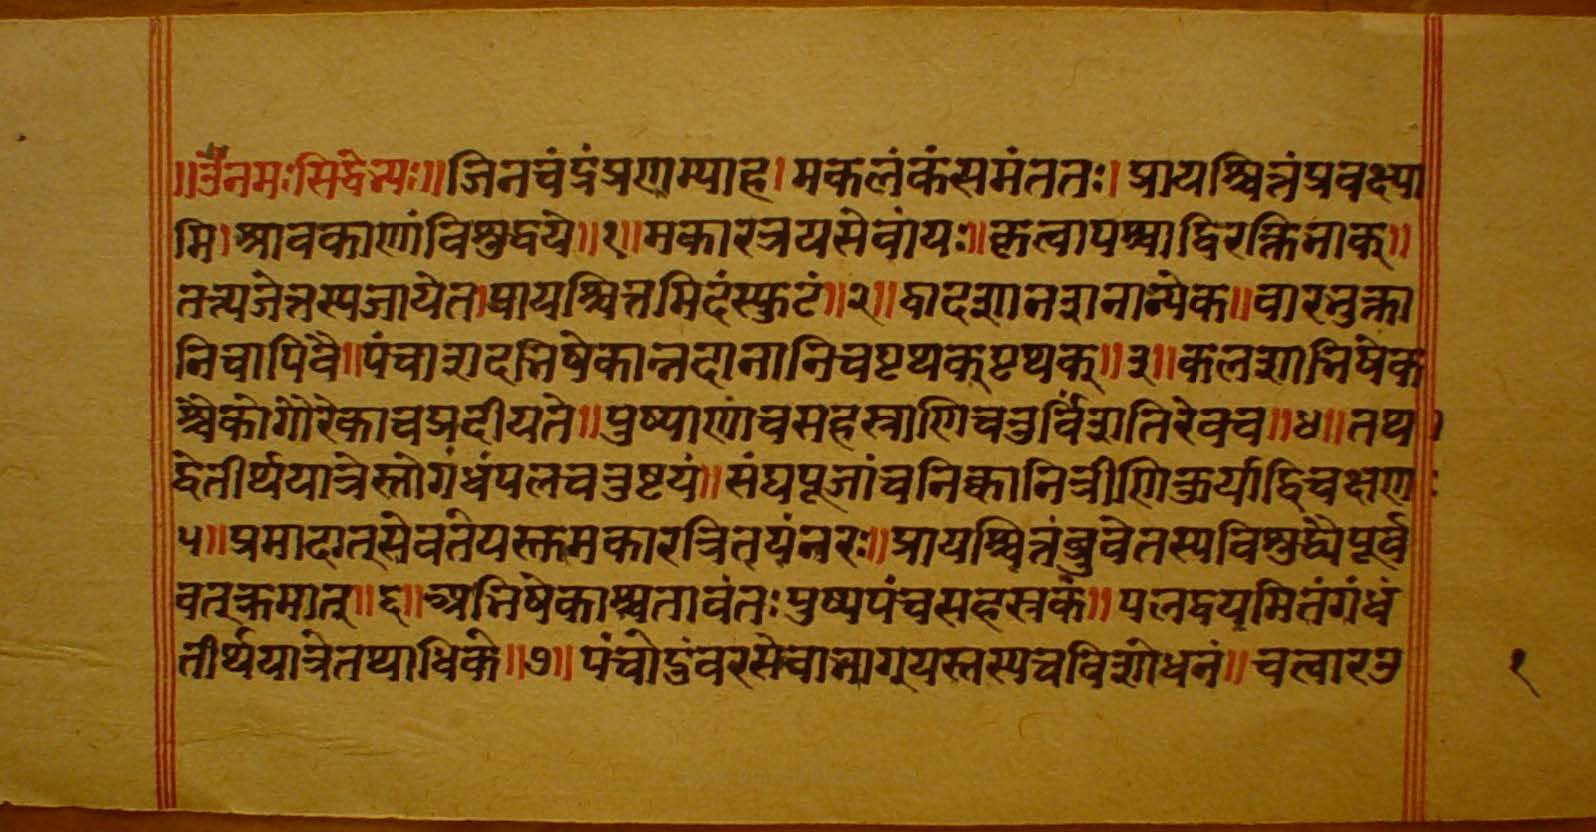 ॥ॐनमःसिद्धेभ्यः॥जिनचंद्रंप्रणम्याह।मकलंकंसमंततः।प्रायश्चित्तंप्रवक्ष्या
मि।श्रावकाणांविशुद्धये॥१॥मकारत्रयसेवांयः॥कृत्वापश्चाद्विरक्तिभाक्॥
तत्त्यजेत्तस्यजायेत।प्रायश्चित्तमिदंस्फुटं॥२॥द्वादशानशनान्येक॥वारभुक्ता
निचापिवै॥पंचाशदभिषेकान्नदानानिचपृथक्पृथक्॥३॥कलशाभिषेक
श्चैकोगौरेकाचप्रदीयते॥पुष्पाणांचसहस्राणिचतुर्विंशतिरेवच॥४॥तथा
द्वेतीर्थयात्रेस्तोगंधंपलचतुष्टयं॥संघपूजांचनिष्कानित्रीणिकुर्याद्विचक्षणः
५॥प्रमादात्सेवतेयस्तुमकारत्रितयंनरः॥प्रायश्चित्तंब्रुवेतस्यविशुद्ध्यैपूर्व
वत्क्रमात्॥६॥अभिषेकाश्चतावंतःपुष्पपंचसहस्रकं॥पलद्वयमितंगंधं
तीर्थयात्रेतथाधिके॥७॥पंचोदुंबरसेवाभाग्यस्तस्यचविशोधनं॥चत्वारउ
१